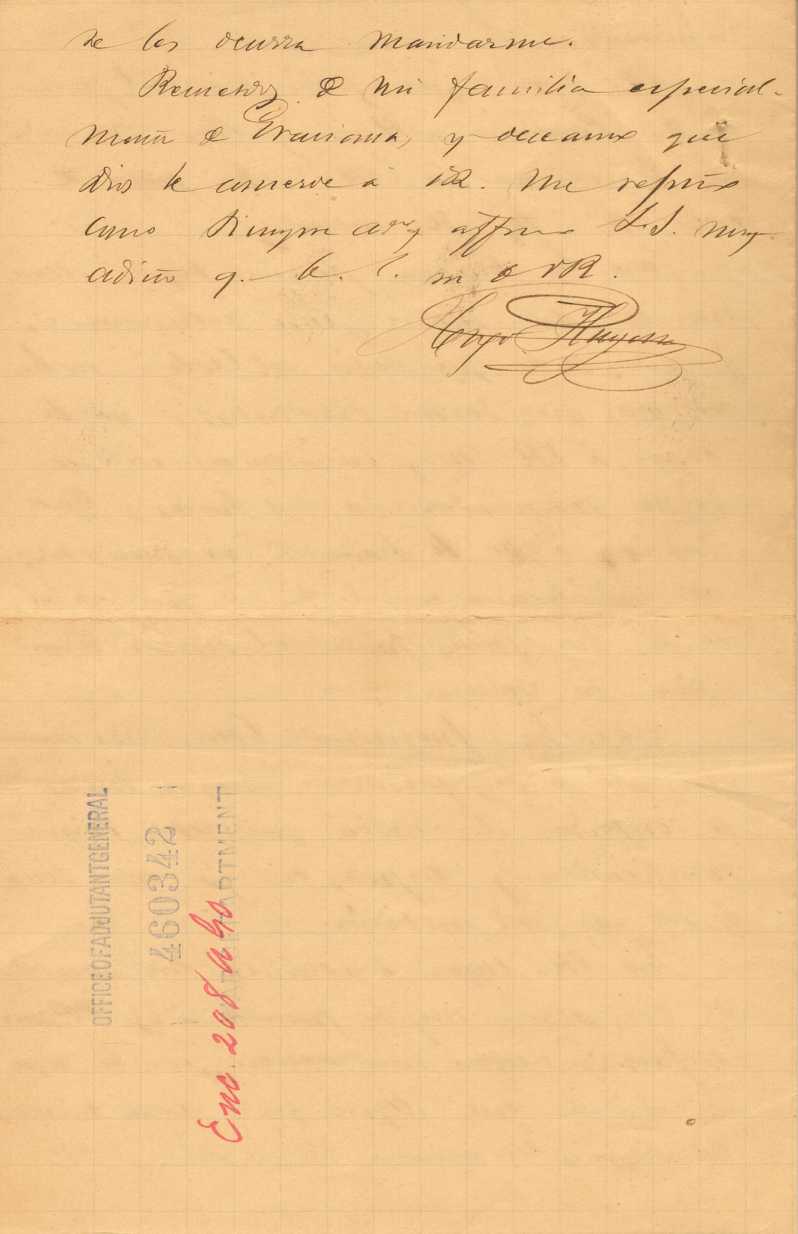 se les ocurra mandarme.
Recuerdos de mi familia especial-
mente de Graciana, y deseamos que
Dios le conserve á UR. Me repito
como siempre affmo S.S. muy
adicto q. b. l. m. de VR.
OFFICE OF ADJUTANT GENERAL
460342
DEPARTMENT
Enc. 208